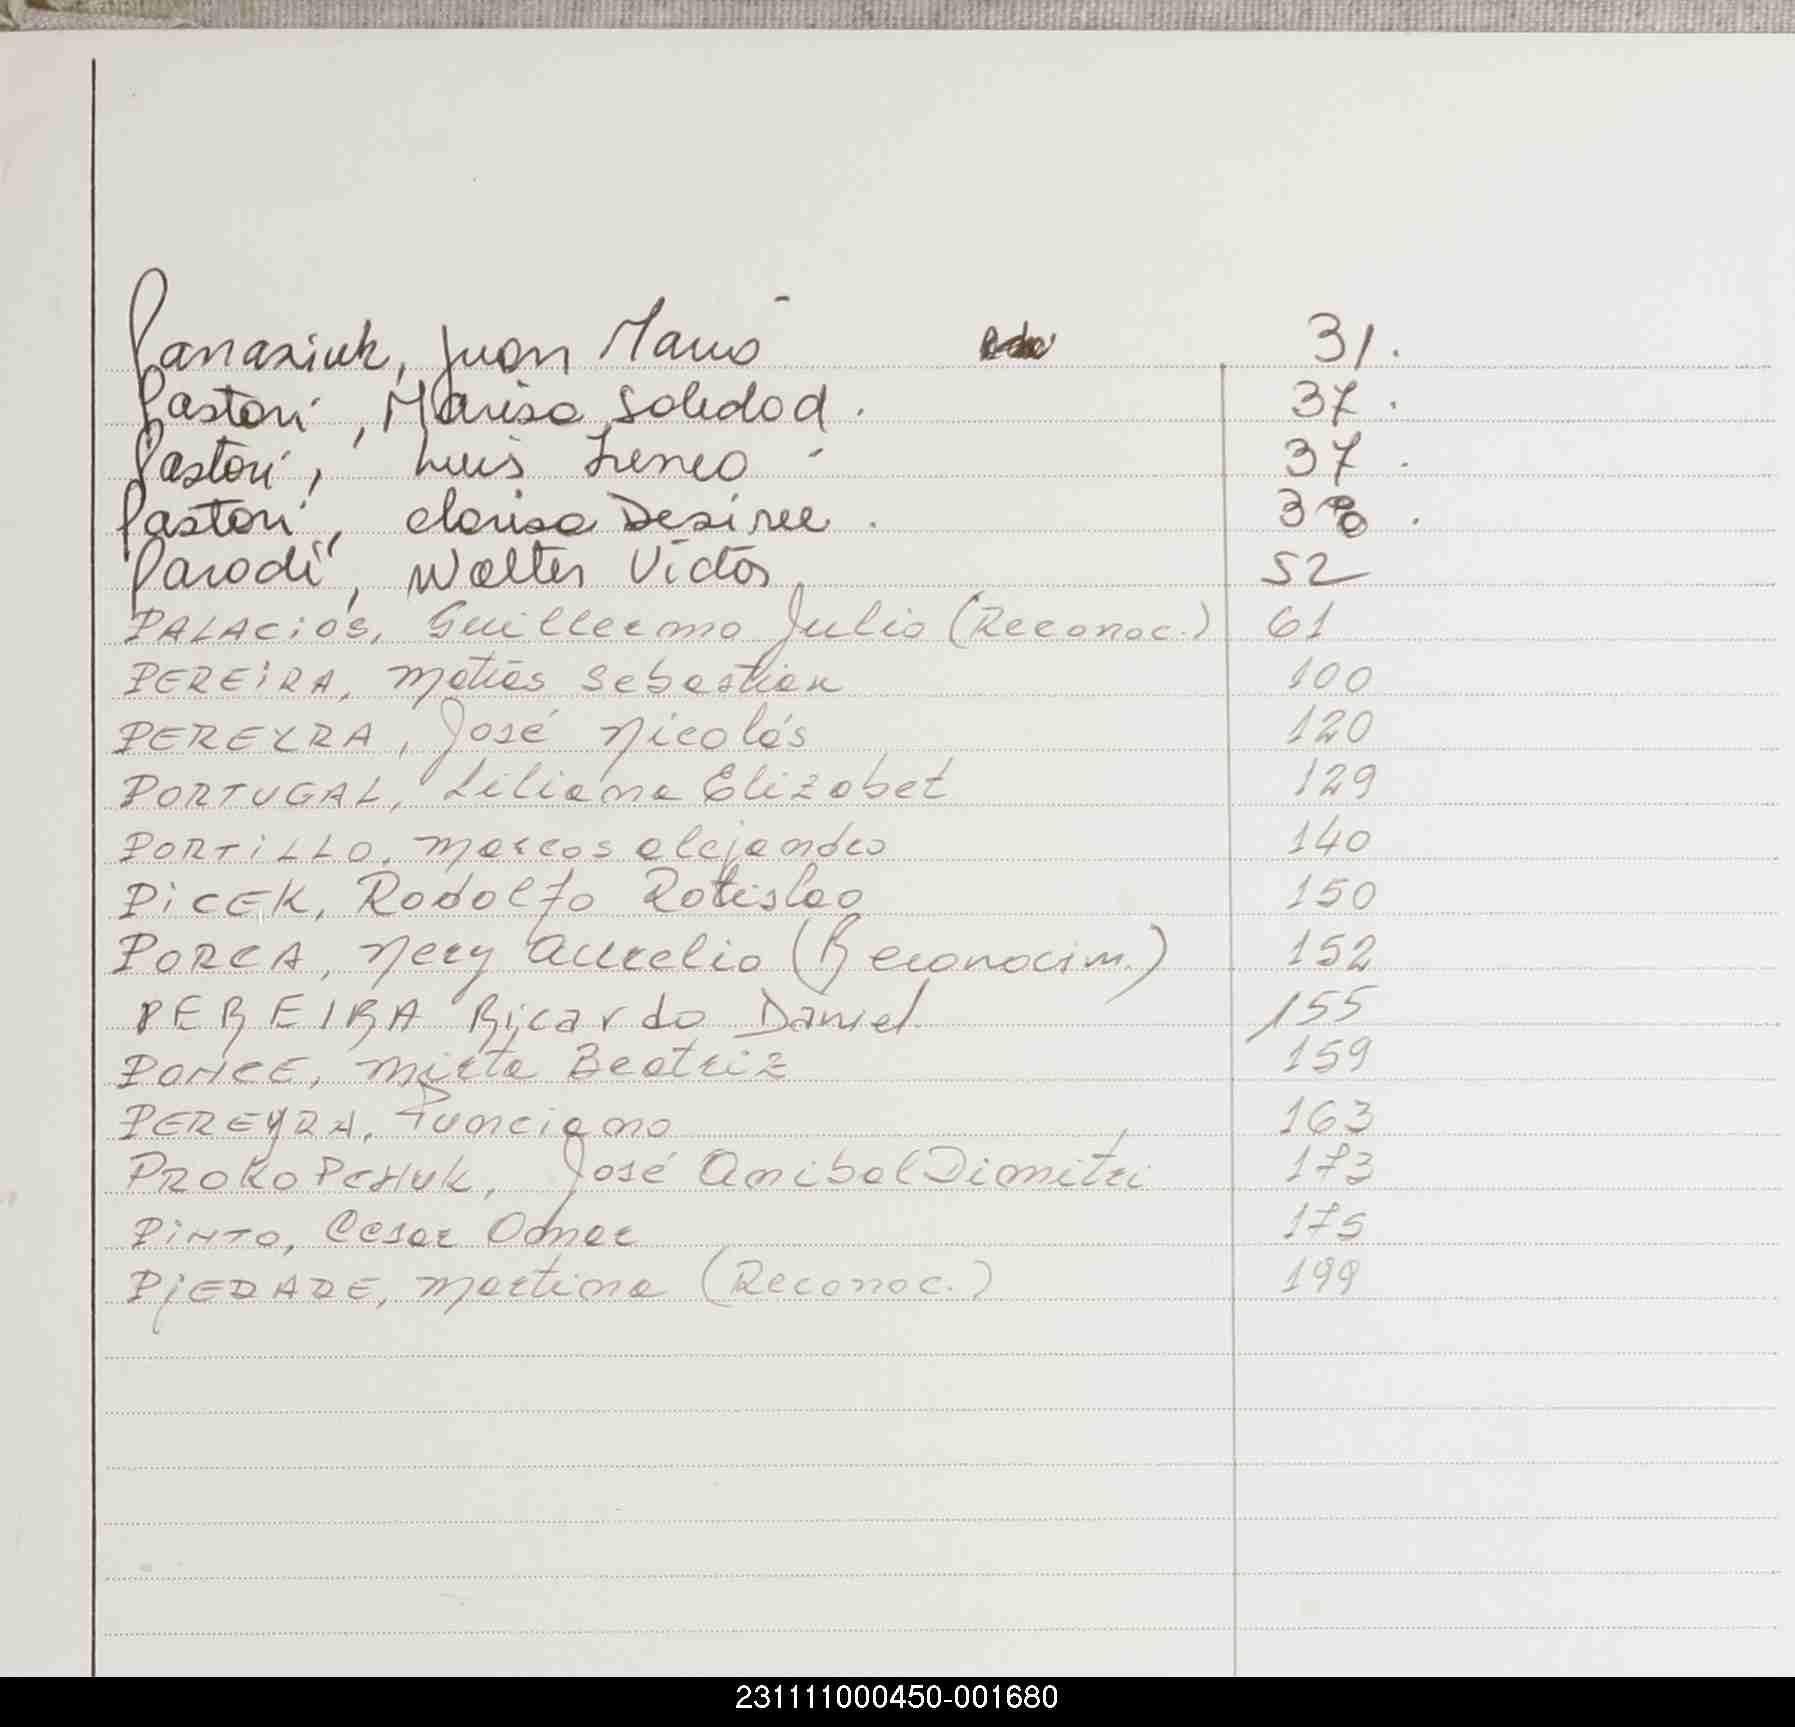 Panasiuk, Juan Mario 31.
Pastori, Marisa Soledad. 37.
Pastori, Luis Ireneo 37.
Pastori, Clarisa Desiree. 38.
Parodi, Walter Victor 52
PALACiOS, Guillermo Julio (Reconoc.) 61
PEREiRA, Matías Sebastian 100
PEREYRA, José Nicolás 120
PORTUGAL, Liliana Elizabet 129
PORTiLLO, Marcos Alejandro 140
PiCEK, Rodolfo Ratislao 150
PORCA, Nery Aurelio (Reconocim.) 152
PEREIRA Ricardo Daniel 155
PONCE, Mirta Beatriz 159
PEREYRA, Punciano 163
PROKOPCHUK, José Anibal Dimitri 173
PiNTO, Cesar Omar 175
PiEDADE, Martina (Reconoc.) 199
231111000450-001680